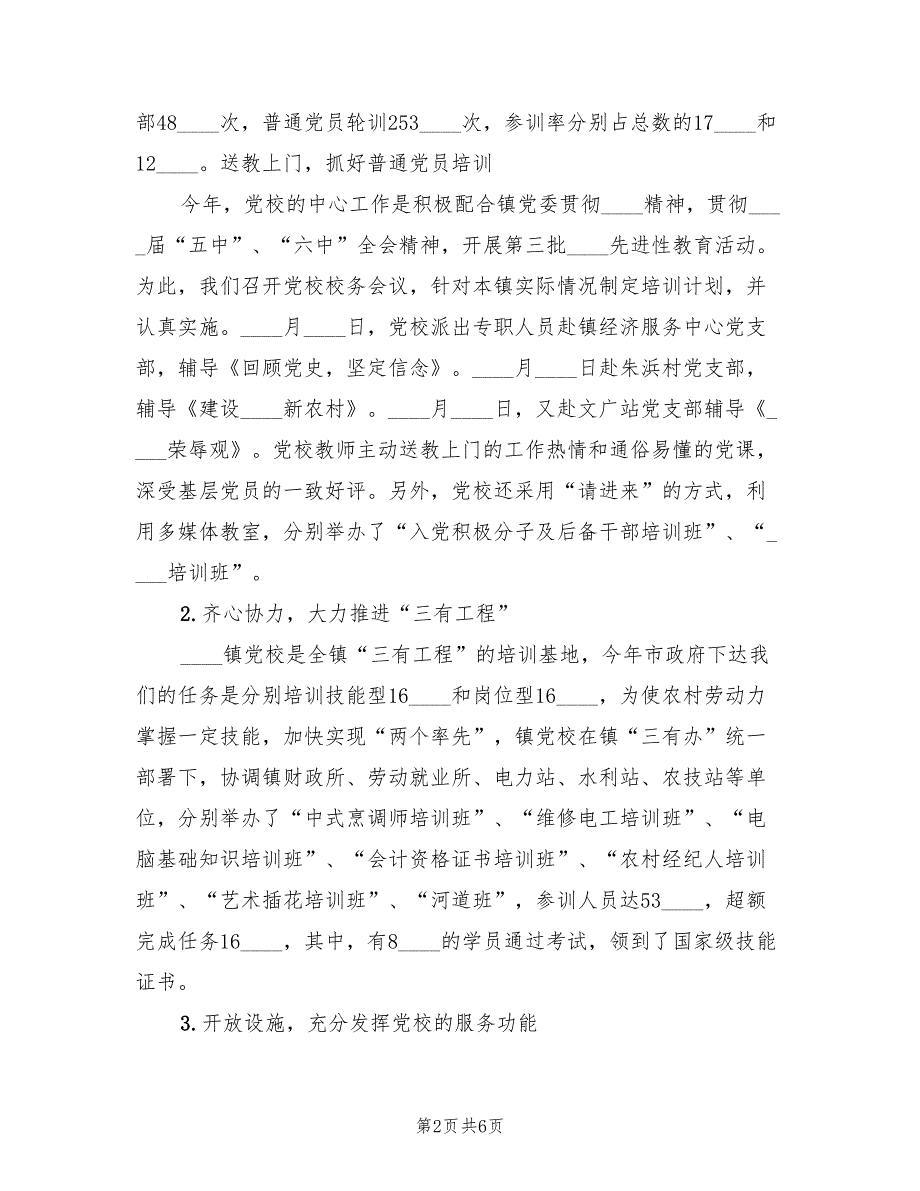 部48____次，普通党员轮训253____次，参训率分别占总数的17____和
12____。送教上门，抓好普通党员培训
今年，党校的中心工作是积极配合镇党委贯彻____精神，贯彻___
_届“五中”、“六中”全会精神，开展第三批____先进性教育活动。
为此，我们召开党校校务会议，针对本镇实际情况制定培训计划，并
认真实施。____月____日，党校派出专职人员赴镇经济服务中心党支
部，辅导《回顾党史，坚定信念》。____月____日赴朱浜村党支部，
辅导《建设____新农村》。____月____日，又赴文广站党支部辅导《_
___荣辱观》。党校教师主动送教上门的工作热情和通俗易懂的党课，
深受基层党员的一致好评。另外，党校还采用“请进来”的方式，利
用多媒体教室，分别举办了“入党积极分子及后备干部培训班”、“_
___培训班”。
2. 齐心协力，大力推进“三有工程”
____镇党校是全镇“三有工程”的培训基地，今年市政府下达我
们的任务是分别培训技能型16____和岗位型16____，为使农村劳动力
掌握一定技能，加快实现“两个率先”，镇党校在镇“三有办”统一
部署下，协调镇财政所、劳动就业所、电力站、水利站、农技站等单
位，分别举办了“中式烹调师培训班”、“维修电工培训班”、“电
脑基础知识培训班”、“会计资格证书培训班”、“农村经纪人培训
班”、“艺术插花培训班”、“河道班”，参训人员达53____，超额
完成任务16____，其中，有8____的学员通过考试，领到了国家级技能
证书。
3. 开放设施，充分发挥党校的服务功能
第2页 共6页